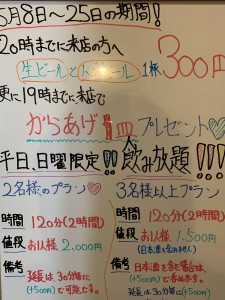 5月8~25日の期間!
20時までに来店の方へ
生ビールと 1杯300円
更に19時までに来店で
からあげ1皿プレゼント♡
平日、日曜限定!!飲み放題!!!
2名様のプラン♡
時間 120分(2時間)
値段 お1人様2.000円
備考 延長は30分毎に
(+500円)で可能です。
3名様以上プラン
時間 120分(2時間)
値段 お1人様1.500円
(日本酒
備考 日本酒を含む場合は、
(+500円)で
延長は30分毎に(+500円)